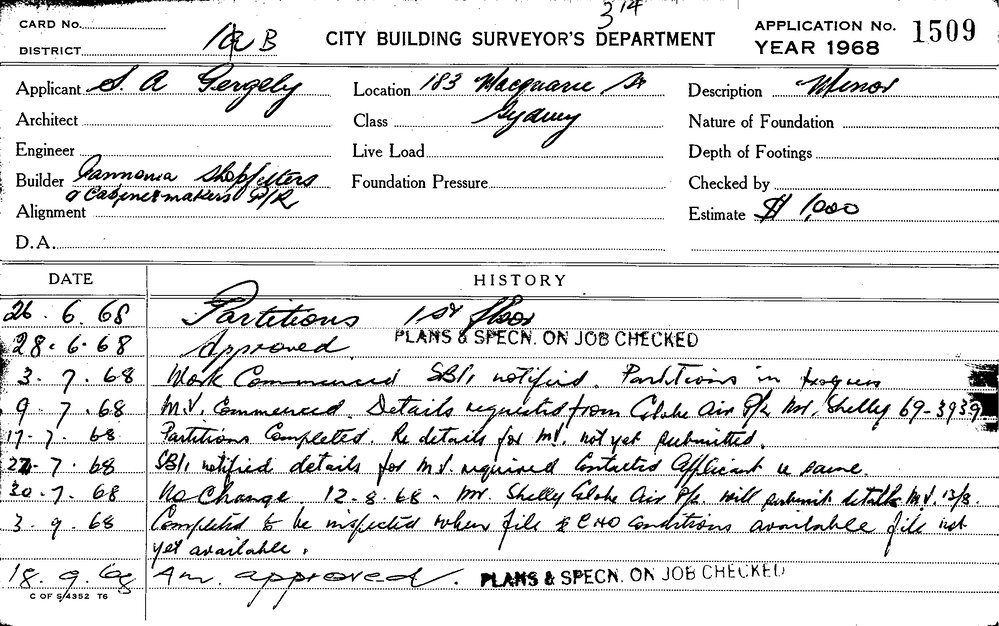 314
CARD No.
DISTRICT 10 B
CITY BUILDING SURVEYOR'S DEPARTMENT
APPLICATION No. 1509
YEAR 1968
Applicant S. A Gergely
Location 183 Macquarie St
Description Minor
Architect
Class Sydney
Nature of Foundation
Engineer
Live Load
Depth of Footings
Builder Pannonia Shopfitters
& Cabinetmakers P/L
Foundation Pressure
Checked by
Alignment
Estimate $ 1,000
D.A.
DATE HISTORY
26. 6. 68 Partitions 1st floor
28. 6. 68 Approved. PLANS & SPECN. ON JOB CHECKED
3. 7. 68 Work Commenced SBI, notified. Partitions in progress
9. 7. 68 M.V. Commenced. Details requested from Globe Air P/L Mr. Shelly 69-3939
17. 7. 68 Partitions Completed. Re details for MV. not yet submitted.
22. 7. 68 SBI, notified details for M.V. required Contacted Applicant re same
30. 7. 68 No Change. 12-8.68 - Mr. Shelly Globe Air P/L. will submit details M.V. 13/8.
3. 9. 68 Completed to be inspected when file & CHO Conditions available file not
yet available.
18. 9. 68 Am. approved. PLANS & SPECN. ON JOB CHECKED
C OF S/4352 T6